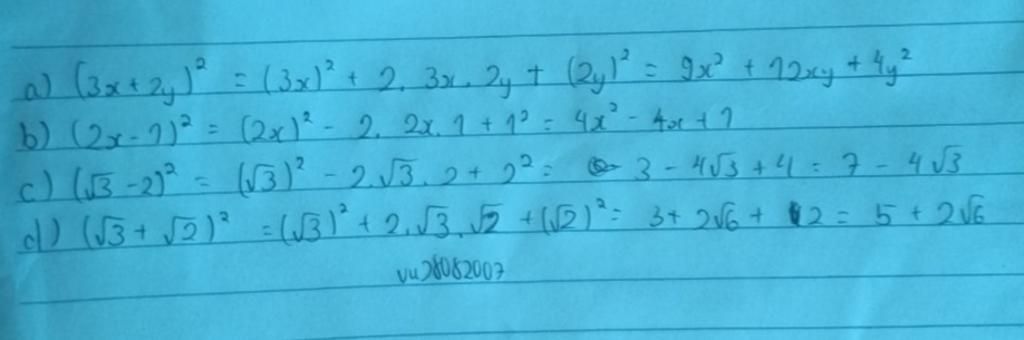 a) (3x + 2y)² = (3x)² + 2. 3x. 2y + (2y)² = 9x² + 12xy + 4y²
b) (2x - 1)² = (2x)² - 2. 2x. 1 + 1² = 4x² - 4x + 1
c) (√3 - 2)² = (√3)² - 2.√3. 2 + 2² = 3 - 4√3 + 4 = 7 - 4√3
d) (√3 + √2)² = (√3)² + 2.√3.√2 + (√2)² = 3 + 2√6 + 2 = 5 + 2√6
vu28082007